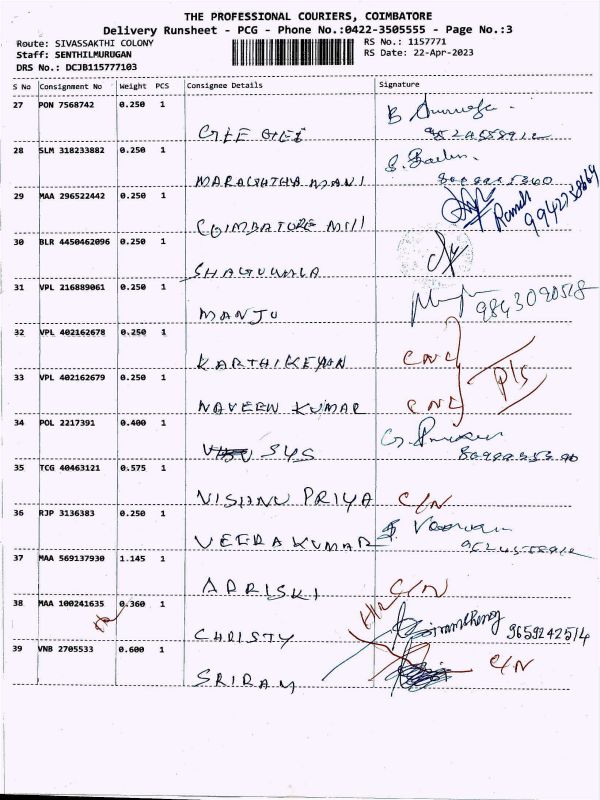 THE PROFESSIONAL COURIERS, COIMBATORE
Delivery Runsheet - PCG - Phone No.:0422-3505555 - Page No.:3
Route: SIVASSAKTHI COLONY
RS No.: 1157771
Staff: SENTHILMURUGAN
RS Date: 22-Apr-2023
DRS No.: DCJB115777103
S No Consignment No Weight PCS Consignee Details Signature
27 PON 7568742 0.250 1
28 SLM 318233882 0.250 1
MANI
29 MAA 296522442 0.250 1
COIMBATORE Mill Ramesh 9942738669
30 BLR 4450462096 0.250 1
31 VPL 216889061 0.250 1
MANJU 9843090518
32 VPL 402162678 0.250 1
KARTHIKEYAN CNC
33 VPL 402162679 0.250 1
Pls
NAVEEN KUMAR CNC
34 POL 2217391 0.400 1
SYS
35 TCG 40463121 0.575 1
VISHNU PRIYA C/N
36 RJP 3136383 0.250 1
VEERAKUMAR
37 MAA 569137930 1.145 1
C/N
38 MAA 100241635 0.360 1
CHRISTY 9659242514
39 VNB 2705533 0.600 1
SRIRAM C/N